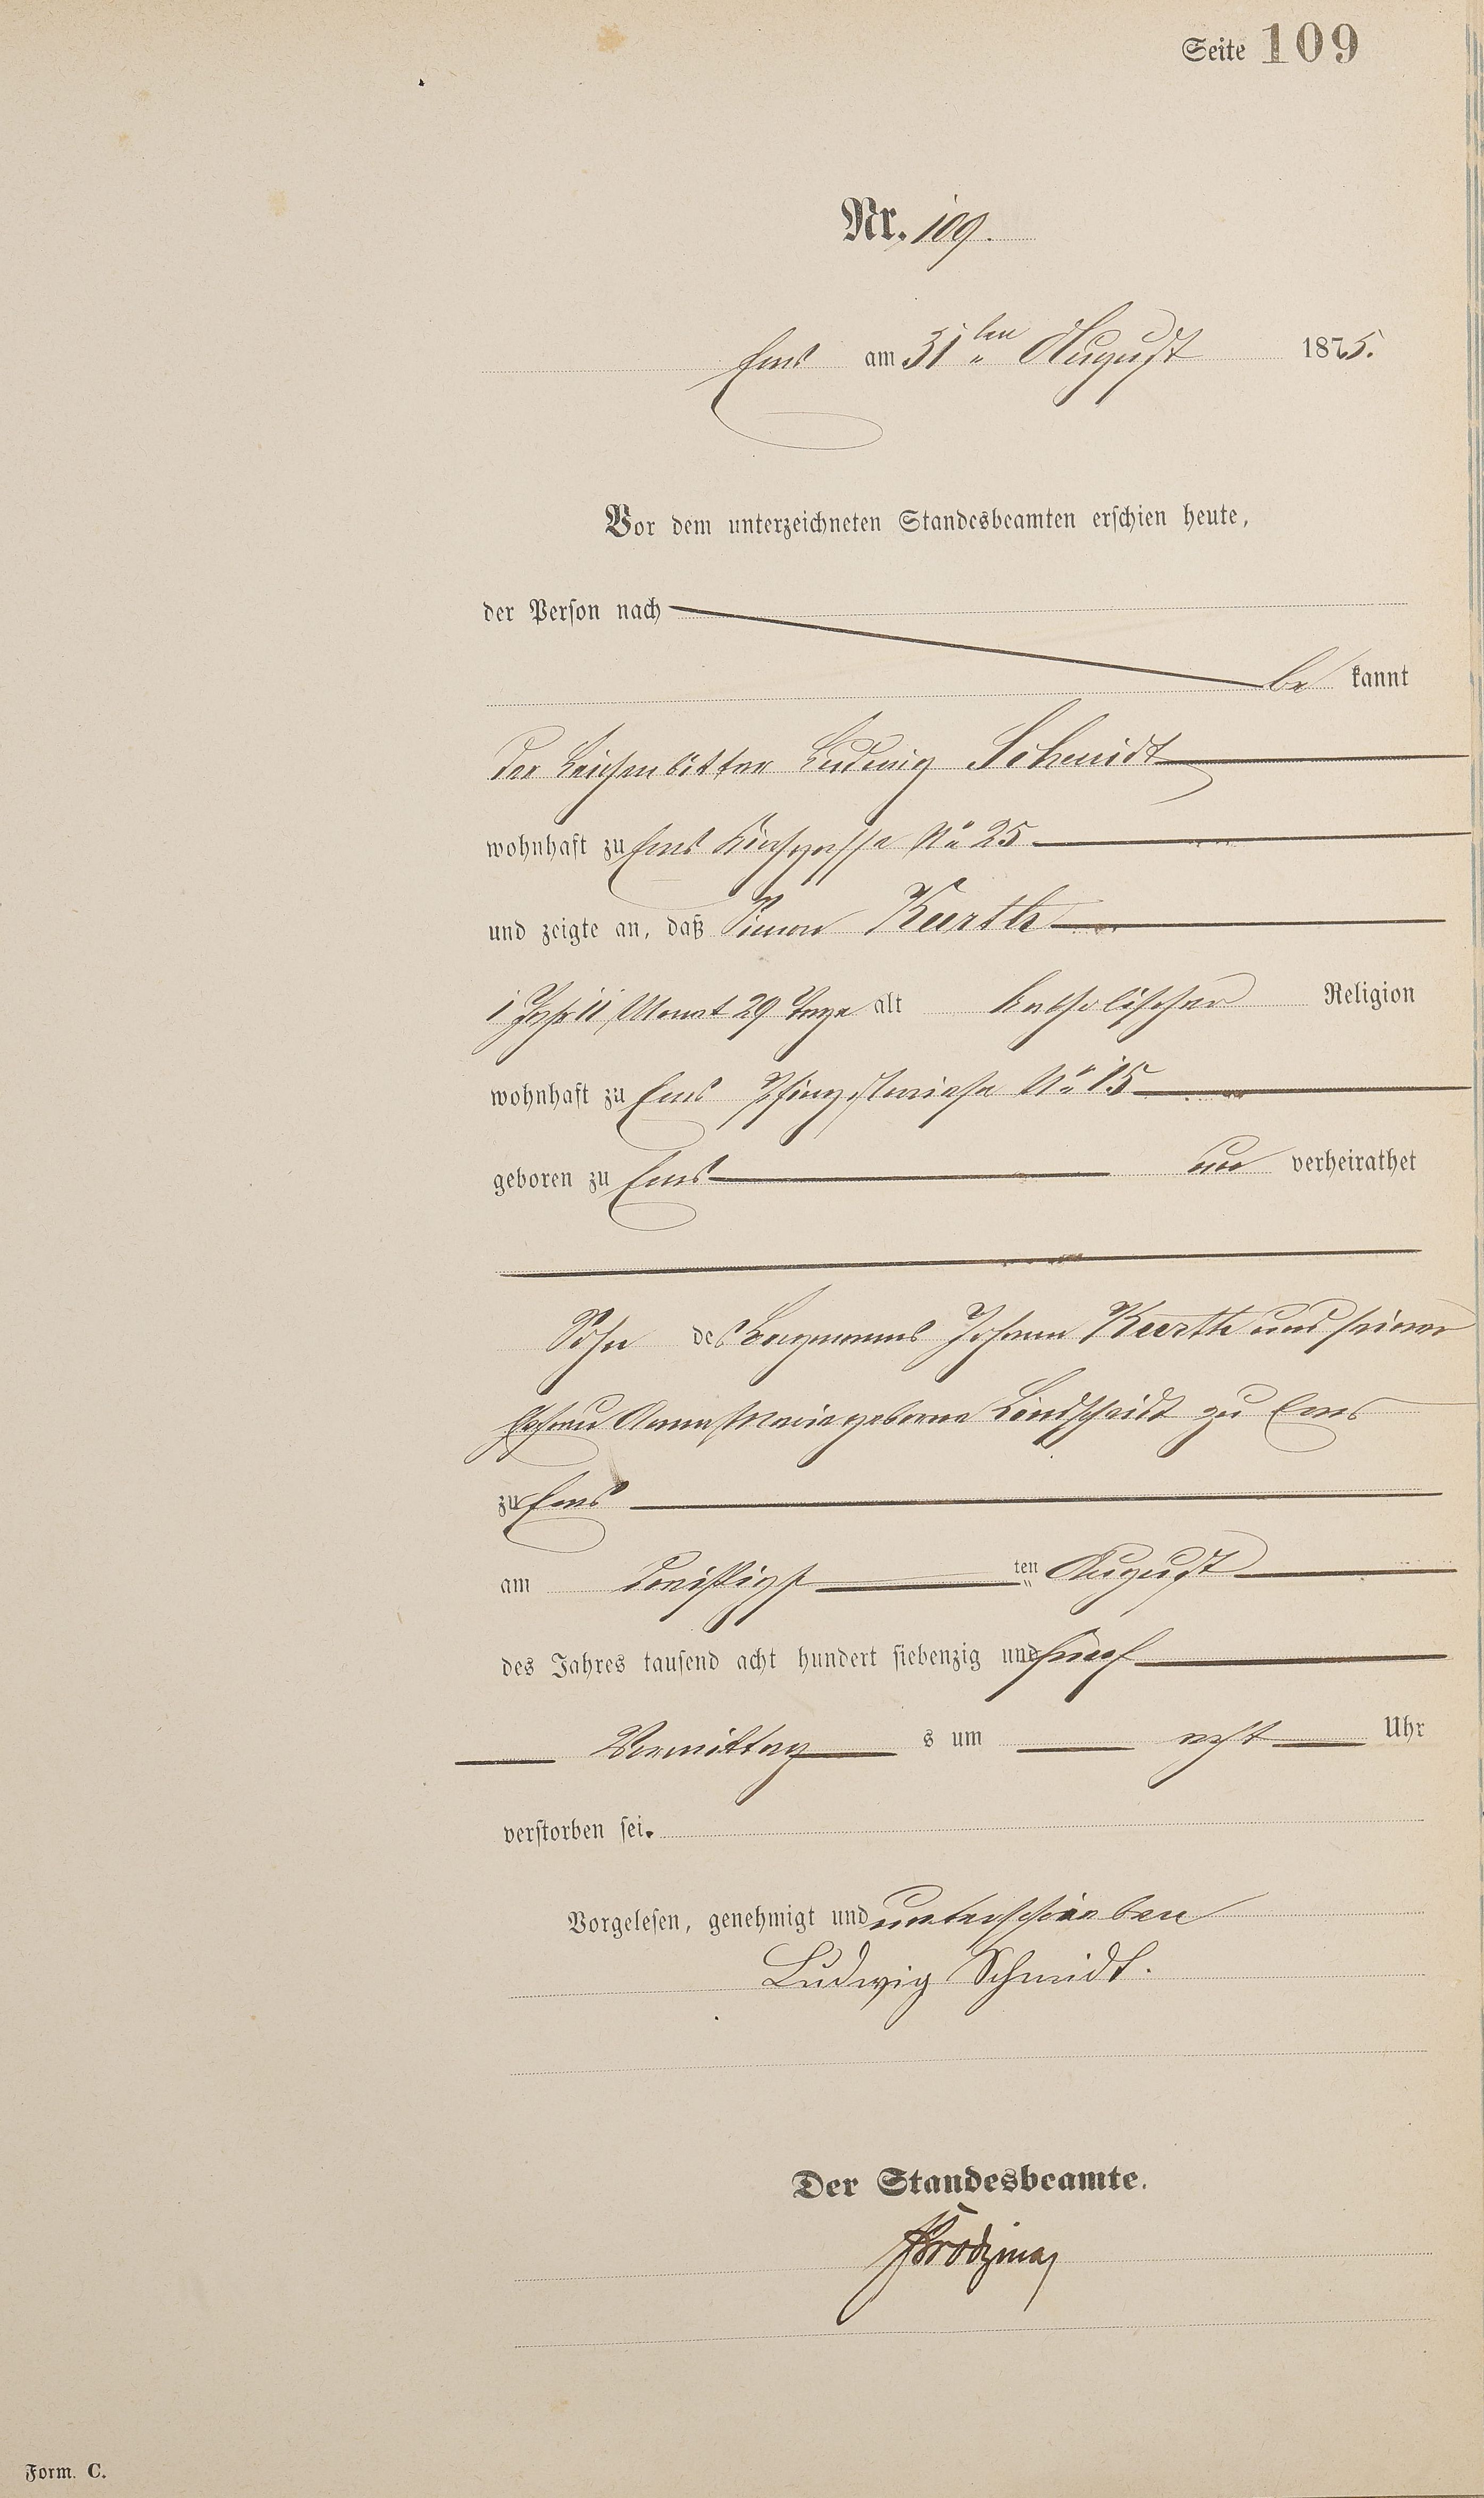 Seite 109
Nr. 109.
Ems am 31ten August 1875.
Vor dem unterzeichneten Standesbeamten erschien heute,
der Person nach
be kannt
der Leichenbitter Ludwig Schmidt
wohnhaft zu Ems Kirchgasse No 25
und zeigte an, daß Simon Kurth
1 Jahr 11 Monat 29 Tage alt katholischer Religion
wohnhaft zu Ems Pfingstwiese No 15
geboren zu Ems un verheirathet
Sohn des Bergmanns Johann Kurth und seiner
Ehefrau Anna Maria geborne Lindscheidt zu Ems
zu Ems
am dreißigs ten August
des Jahres tausend acht hundert siebenzig und fünf
Vormittag s um acht Uhr
verstorben sei.
Vorgelesen, genehmigt und unterschrieben
Ludwig Schmidt.
Der Standesbeamte.
Form. C.